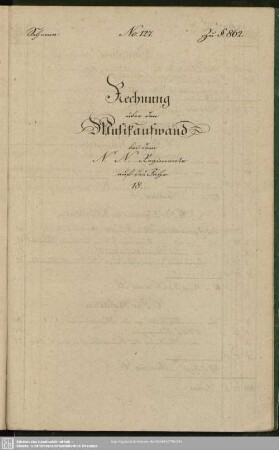 Schema No. 127. Zu § 862.
Rechnung
über den
Musikaufwand
bei dem
N. N. Regimente
auf das Jahr
18.